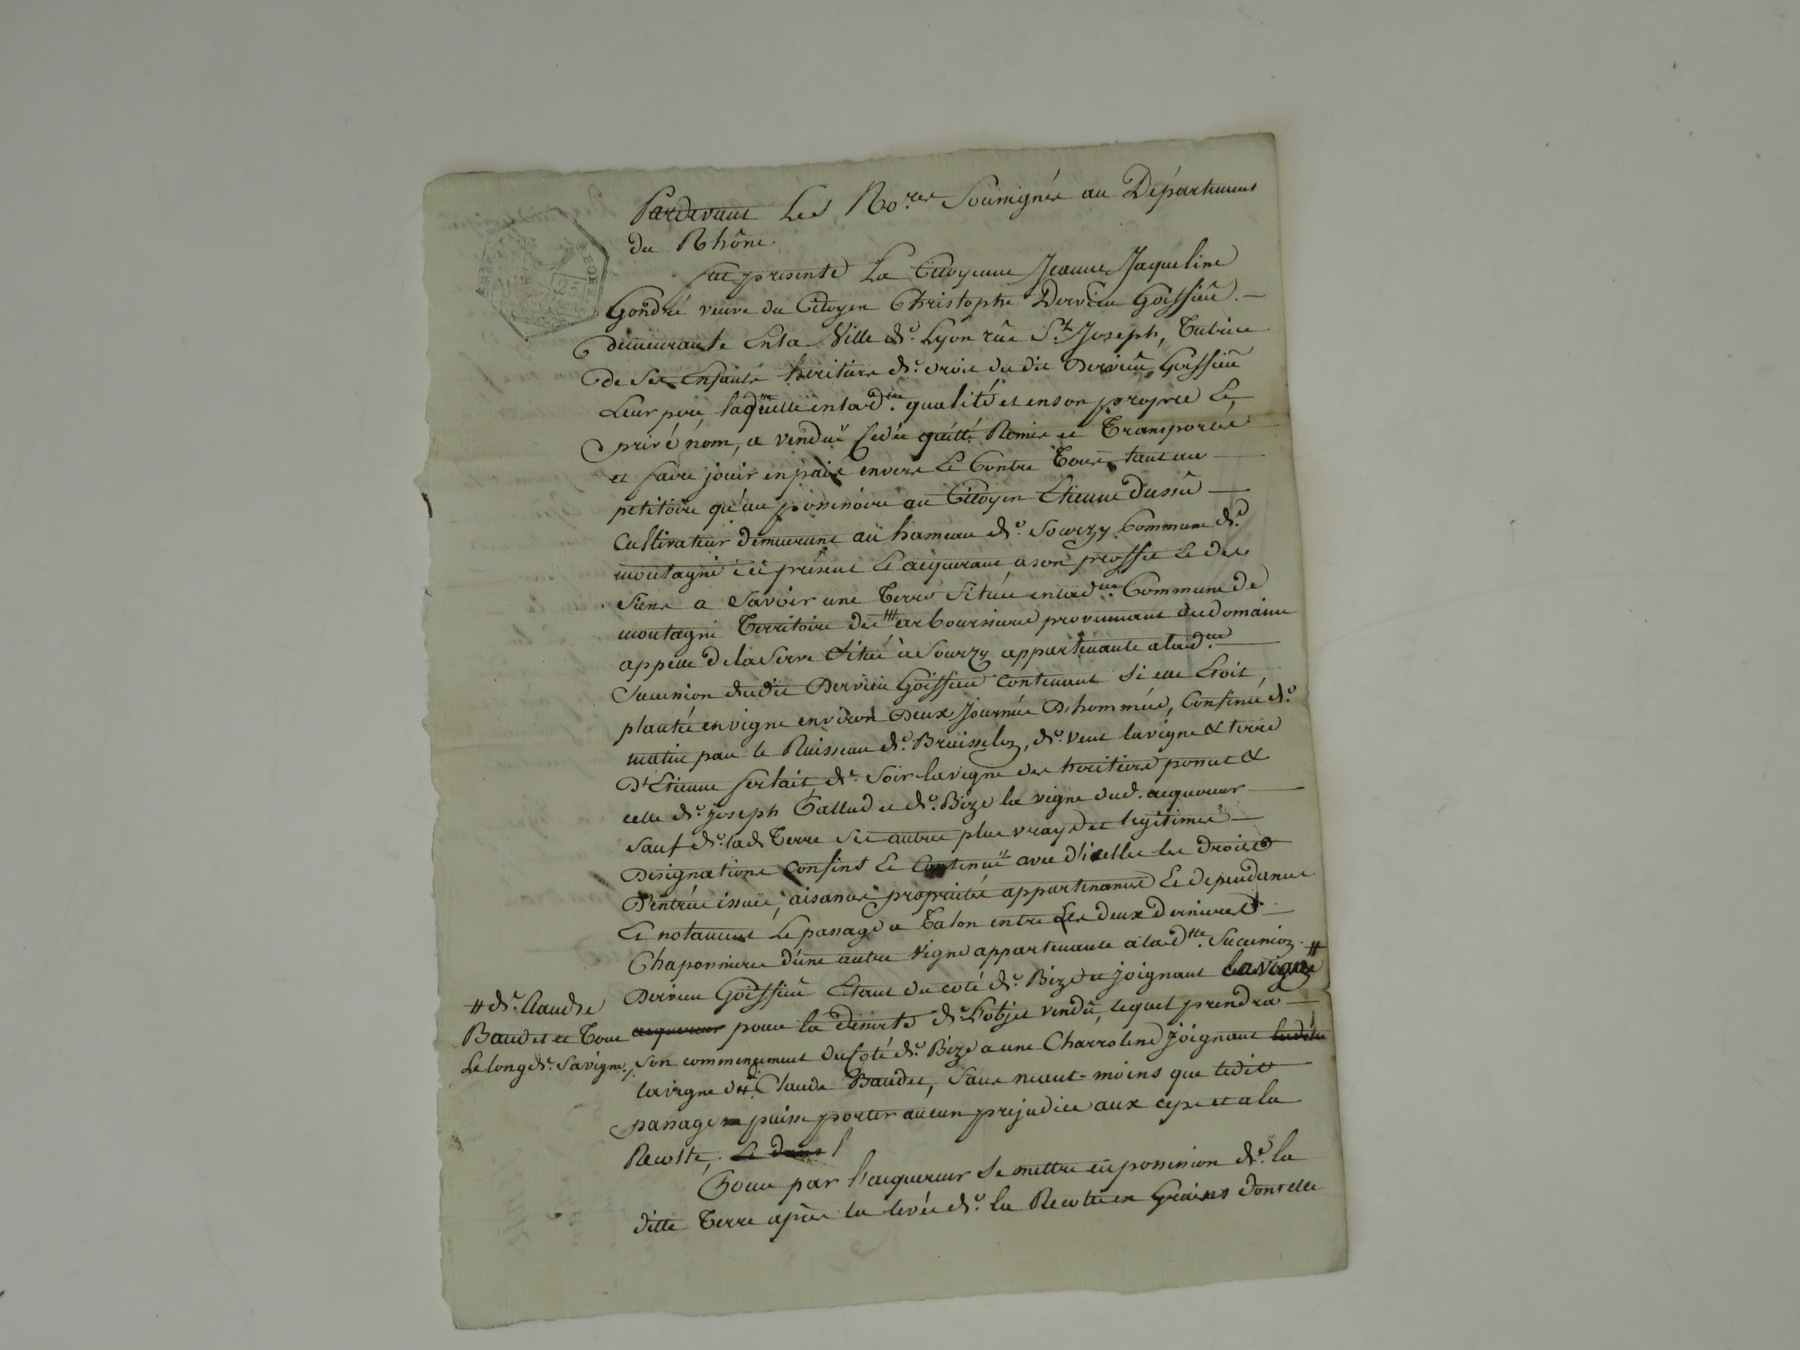 Pardevant Les No.res Soussignés au Département
du Rhône.
fut presente La Citoyenne Jeanne Jaqueline
Gondré veuve du Citoyen Christophe Dervieu Goiffieu. —
demeurante en la Ville de Lyon rüe St. Joseph, Tutrice
de Ses enfants heritiers de droit du dit Dervieu Goiffieu
Leur pere, laquelle en lad.ite qualité et en son propre Et
privé nom, a vendu cedée quitté Remis et Transporté
et faire jouir en paix envers Et Contre Tous, tant au —
petitoire qu'au possessoire au Citoyen Etienne dussu —
Cultivateur demeurant au hameau de Sourzy Commune de
montagni ici présent Et acquerant a son proffit Et des
Siens a Savoir une Terre Située en lad.ite Commune de
montagni Territoire des arboursieres provenant du domaine
appellé De la Serve Situé à Sourzy appartenante a la d.ite
Succession dudit Dervieu Goiffieu contenant Si elle Etoit
plantée en vigne environ Deux Journée D'hommée, Confiné de
matin par le Ruisseau de, de vent la vigne & terre
D'Etienne de Soir la vigne des heritiers poncet &
celle de joseph Tallud et de Bize la vigne dud. acquereur —
Sauf de lad. Terre Ses autres plus vrays et legitimes —
Designations Confins Et Contenu avec d'icelles les droits
D'entrée issuë, aisances propriétés appartenances Et dependances
Et notament Le passage a Talon entre Les deux dernieres —
Chaponnieres d'une autre Vigne appartenante a la d.tte Succession.
Dervieu Goiffieu Etant du coté de Bize et joignant la vigne #
# de Claude
Baudet et Tout
Le long de Sa vigne./.
acquereur pour la deserte de L'objet vendu, lequel prendra —
Son commencement du Coté de Bize a une Charroliere Joignant
la vigne de Claude Baudet, Sans neant-moins que ledit
passage puisse porter aucun prejudice aux ceps et a la
Recolte, Et dans
Pour par l'acquereur Se mettre en possession de la
ditte Terre après la levée de la Recolte en Grains dont elle